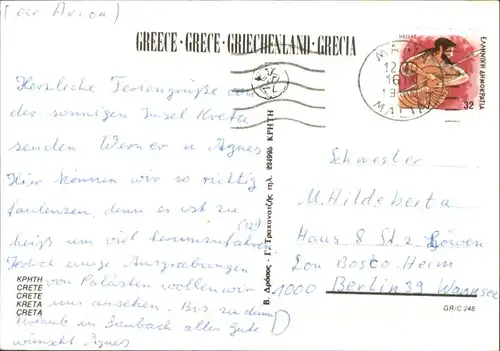 (per Avion)
GREECE · GRECE · GRIECHENLAND · GRECIA
HELLAS
ΕΛΛΗΝΙΚΗ ΔΗΜΟΚΡΑΤΙΑ
32
12
16
MALIA
Herzliche Feriengrüße von
der sonnigen Insel Kreta
senden Werner u. Agnes
Hier können wir so richtig
faulenzen, denn es ist zu
heiß um viel herumzufahren
Jedoch einige Ausgrabungen
von Palästen wollen wir
uns ansehen. Bis zu dem
in alles Gute
wünscht Agnes
ΚΡΗΤΗ
CRETE
CRETE
KRETA
CRETA
Β. Δρόσος - Γ. Τραχανατζής τηλ. 224996 ΚΡΗΤΗ
Schwester
M. Hildeberta
Haus 8 St. 2 Löwen
Don Bosco Heim
1000 Berlin 39 Wannsee
D
GR/C 248